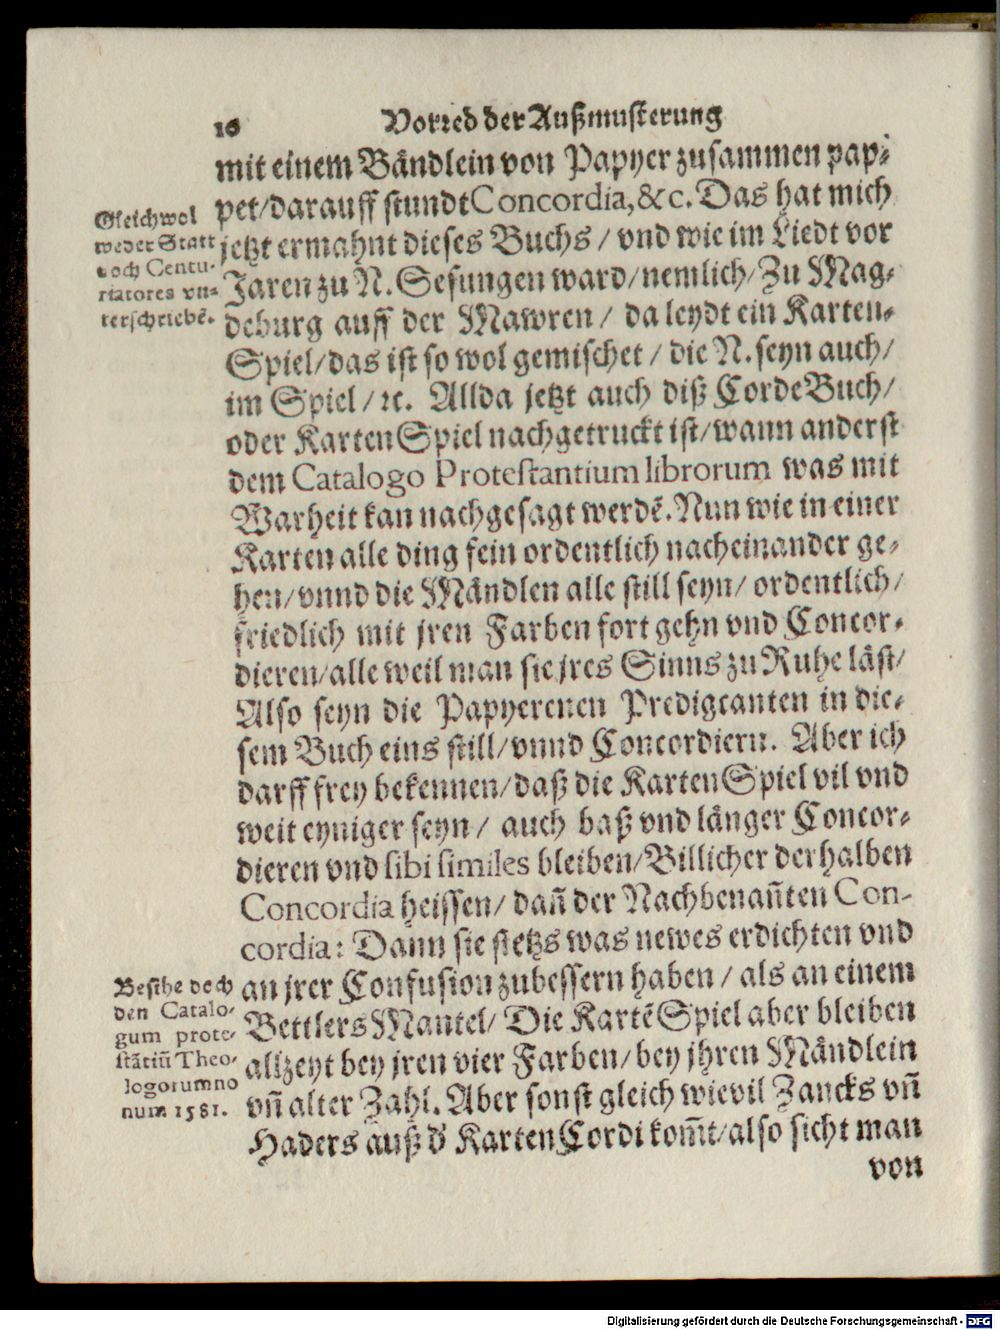 16 Vorred der Außmusterung
mit einem Bändlein von Papyer zusammen pap-
pet/darauff stundt Concordia, &c. Das hat mich
jetzt ermahnt dieses Buchs / vnd wie im Liedt vor
Jaren zu N. Gesungen ward/nemlich/Zu Mag-
deburg auff der Mawren / da leydt ein Karten-
Spiel/das ist so wol gemischet / die N. seyn auch/
im Spiel /ꝛc. Allda jetzt auch diß CordeBuch/
oder KartenSpiel nachgetruckt ist/wann anderst
dem Catalogo Protestantium librorum was mit
Warheit kan nachgesagt werdẽ. Nun wie in einer
Karten alle ding fein ordentlich nacheinander ge-
hen/vnnd die Mändlen alle still seyn/ ordentlich/
friedlich mit jren Farben fort gehn vnd Concor-
dieren/alle weil man sie jres Sinns zu Ruhe läst/
Also seyn die Papyerenen Predigcanten in die-
sem Buch eins still/vnnd Concordiern. Aber ich
darff frey bekennen/daß die KartenSpiel vil vnd
weit eyniger seyn / auch baß vnd länger Concor-
dieren vnd sibi similes bleiben/Billicher derhalben
Concordia heissen/ dañ der Nachbenañten Con-
cordia: Dann sie stetzs was newes erdichten vnd
an jrer Confusion zubessern haben / als an einem
Bettlers Mantel/ Die KartẽSpiel aber bleiben
allzeyt bey jren vier Farben/bey jhren Mändlein
vñ alter Zahl. Aber sonst gleich wievil Zancks vñ
Haders auß d' KartenCordi kom̃t/also sicht man
von
Gleichwol
weder Statt
noch Centu-
riatores vn-
terschriebẽ.
Besihe doch
den Catalo-
gum prote-
stãtiũ Theo-
logorum no
num 1581.
Digitalisierung gefördert durch die Deutsche Forschungsgemeinschaft - DFG